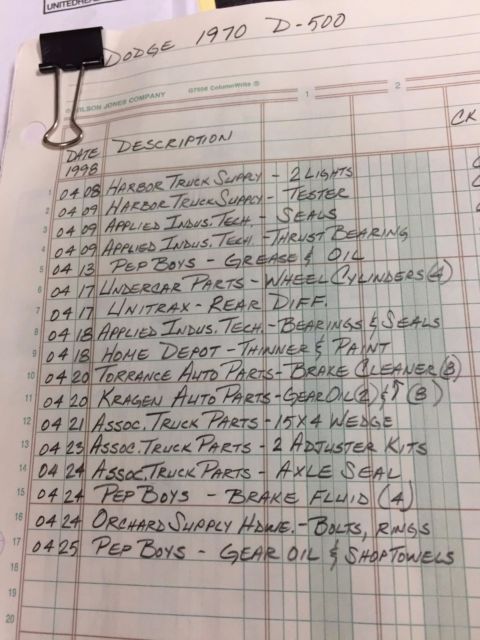 UNITEDHEA
DODGE 1970 D-500
WILSON JONES COMPANY G7506 ColumnWrite ®
1 2
DATE DESCRIPTION CK
1998
1 04 08 HARBOR TRUCK SUPPLY - 2 LIGHTS
2 04 09 HARBOR TRUCK SUPPLY - TESTER
3 04 09 APPLIED INDUS. TECH. - SEALS
4 04 09 APPLIED INDUS. TECH. - THRUST BEARING
5 04 13 PEP BOYS - GREASE & OIL
6 04 17 UNDERCAR PARTS - WHEEL CYLINDERS (4)
7 04 17 UNITRAX - REAR DIFF.
8 04 18 APPLIED INDUS. TECH. - BEARINGS & SEALS
9 04 18 HOME DEPOT - THINNER & PAINT
10 04 20 TORRANCE AUTO PARTS - BRAKE CLEANER (8)
11 04 20 KRAGEN AUTO PARTS - GEAR OIL (2) & ↑ (8)
12 04 21 ASSOC. TRUCK PARTS - 15X4 WEDGE
13 04 23 ASSOC. TRUCK PARTS - 2 ADJUSTER KITS
14 04 24 ASSOC. TRUCK PARTS - AXLE SEAL
15 04 24 PEP BOYS - BRAKE FLUID (4)
16 04 24 ORCHARD SUPPLY HDWE. - BOLTS, RINGS
17 04 25 PEP BOYS - GEAR OIL & SHOP TOWELS
18
19
20